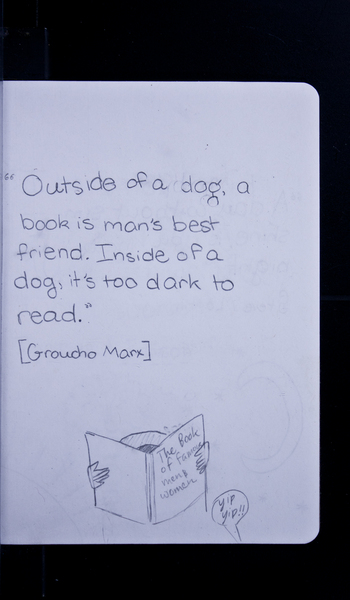 “Outside of a dog, a
book is man's best
friend. Inside of a
dog, it's too dark to
read.”
[Groucho Marx]
The Book
of Famous
men &
woman
yip
yip!!